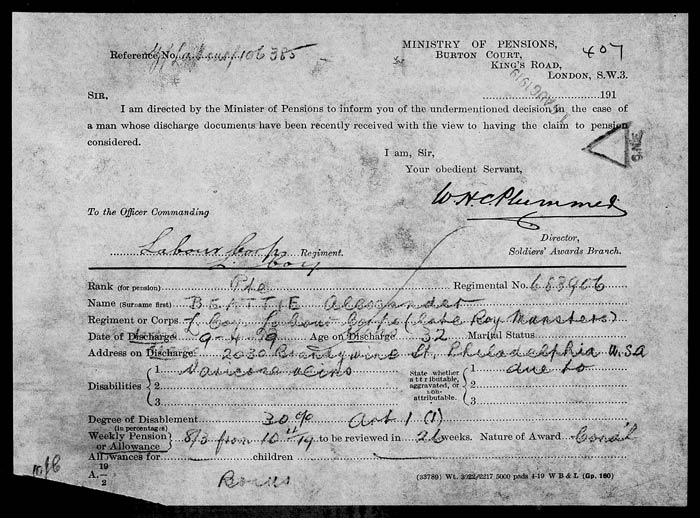 Reference No. 106385
MINISTRY OF PENSIONS,
BURTON COURT, 407
KING'S ROAD,
LONDON, S.W.3.
SIR, 191
I am directed by the Minister of Pensions to inform you of the undermentioned decision in the case of
a man whose discharge documents have been recently received with the view to having the claim to pension
considered.
I am, Sir,
Your obedient Servant,
W.H.C. Plummer
To the Officer Commanding
Director,
Labour Corps Regiment. Soldiers' Awards Branch.
Rank (for pension) Pte Regimental No. 663906
Name (Surname first) BEATTIE Alexander
Regiment or Corps Z Coy. Labour Corps (late Roy Munsters)
Date of Discharge 9-4-19 Age on Discharge 32 Marital Status
Address on Discharge: 2030 Brandywine St, Philadelphia U.S.A
Disabilities { 1. Varicose veins State whether attributable, aggravated, or non-attributable. { 1. due to
2. 2.
3. 3.
Degree of Disablement 30% Art 1 (1)
(in percentages)
Weekly Pension or Allowance } 8/3 from 10 4 19 to be reviewed in 26 weeks. Nature of Award Condl
Allowances for children
19
A.—
2
Bonus
(33789) Wt. 3922/2217 5000 pads 4-19 W B & L (Gp. 160)